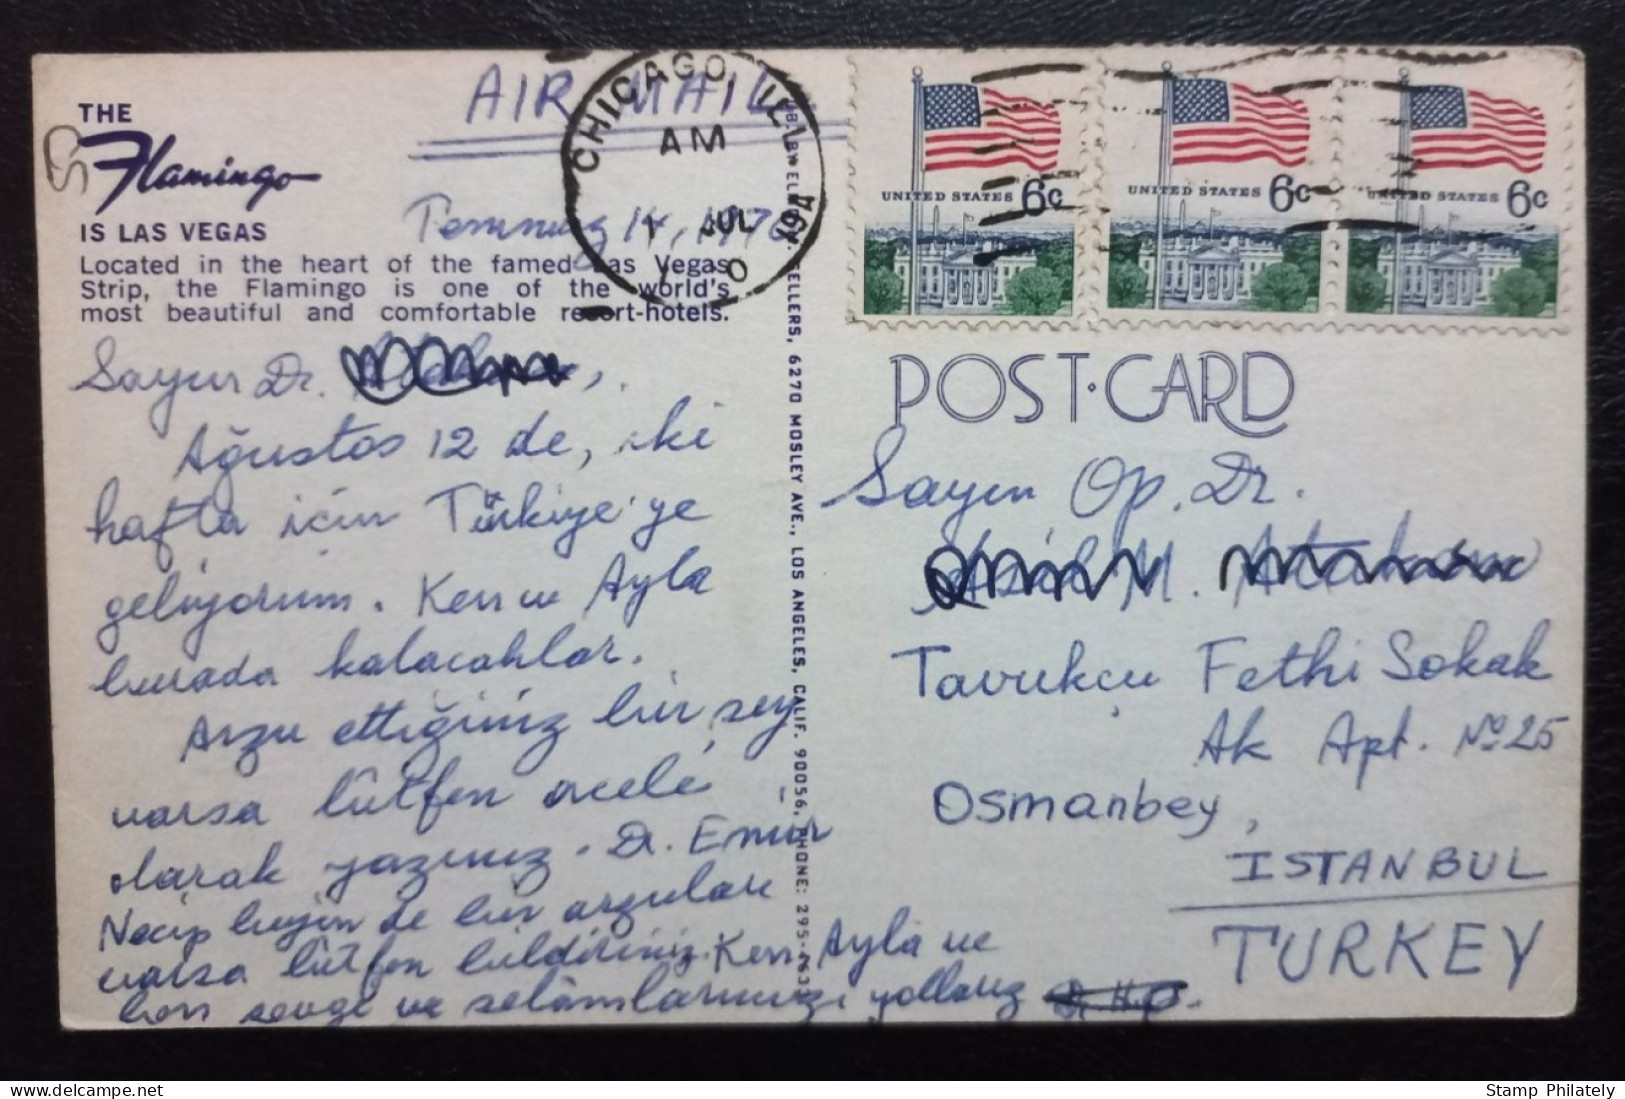 AIR MAIL
THE
Flamingo
IS LAS VEGAS
Located in the heart of the famed Las Vegas
Strip, the Flamingo is one of the world's
most beautiful and comfortable resort-hotels.
Temmuz 14, 1970
CHICAGO, ILL
AM
JUL
UNITED STATES 6c
UNITED STATES 6c
UNITED STATES 6c
Sayın Dr.
Ağustos 12 de, iki
hafta için Türkiye'ye
geliyorum. Ken ve Ayla
burada kalacaklar.
Arzu ettiğiniz bir şey
varsa lütfen acele
olarak yazınız. Dr. Emin
Necip beyin de bir arzuları
varsa lütfen bildiriniz. Ken, Ayla ve
ben sevgi ve selâmlarımızı yollarız
SELLERS, 6270 MOSLEY AVE., LOS ANGELES, CALIF. 90056, PHONE: 295-
POST·CARD
Sayın Op. Dr.
M.
Tavukçu Fethi Sokak
Ak Apt. No 25
Osmanbey,
ISTANBUL
TURKEY
Stamp Philately